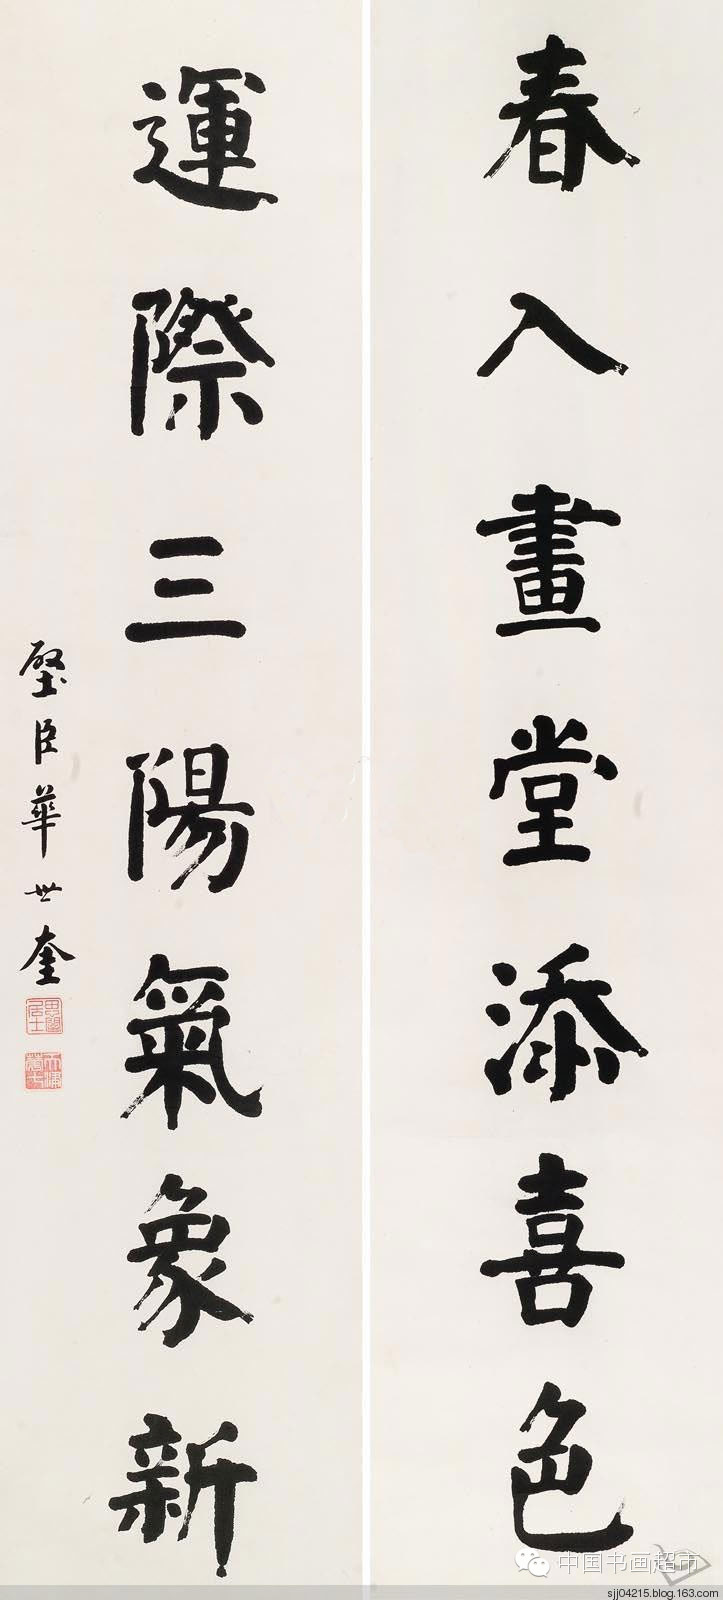 春入畫堂添喜色
運際三陽氣象新
璧臣華世奎
中国书画超市
sjj04215.blog.163.com